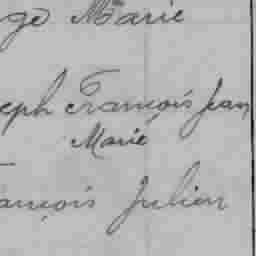 ge Marie
eph François Jean
Marie
ançois Julien